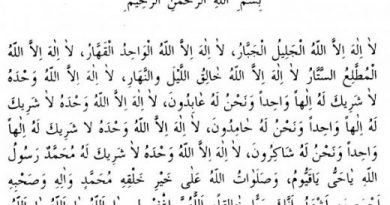 بِسْمِ اللهِ الرَّحْمٰنِ الرَّحِيمِ
لاَ اِلٰهَ اِلاَّ اللّٰهُ الْجَلِيلُ الْجَبَّارُ، لاَ اِلٰهَ اِلاَّ اللّٰهُ الْوَاحِدُ الْقَهَّارُ، لاَ اِلٰهَ اِلاَّ اللّٰهُ
الْمُطَّلِعُ السَّتَّارُ لاَ اِلٰهَ اِلاَّ اللّٰهُ خَالِقُ اللَّيْلِ وَالنَّهَارِ، لاَ اِلٰهَ اِلاَّ اللّٰهُ وَحْدَهُ
لاَ شَرِيكَ لَهُ اِلٰهاً وَاحِداً وَنَحْنُ لَهُ عَابِدُونَ، لاَ اِلٰهَ اِلاَّ اللّٰهُ وَحْدَهُ لاَ شَرِيكَ
لَهُ اِلٰهاً وَاحِداً وَنَحْنُ لَهُ حَامِدُونَ، لاَ اِلٰهَ اِلاَّ اللّٰهُ وَحْدَهُ لاَ شَرِيكَ لَهُ اِلٰهاً
وَاحِداً وَنَحْنُ لَهُ شَاكِرُونَ، لاَ اِلٰهَ اِلاَّ اللّٰهُ وَحْدَهُ لاَ شَرِيكَ لَهُ مُحَمَّدٌ رَسُولُ
اللّٰهِ يَاحَىُّ يَاقَيُّومُ، وَصَلَوَاتُ اللّٰهِ عَلَى خَيْرِ خَلْقِهِ مُحَمَّدٍ وَاٰلِهِ وَصَحْبِهِ